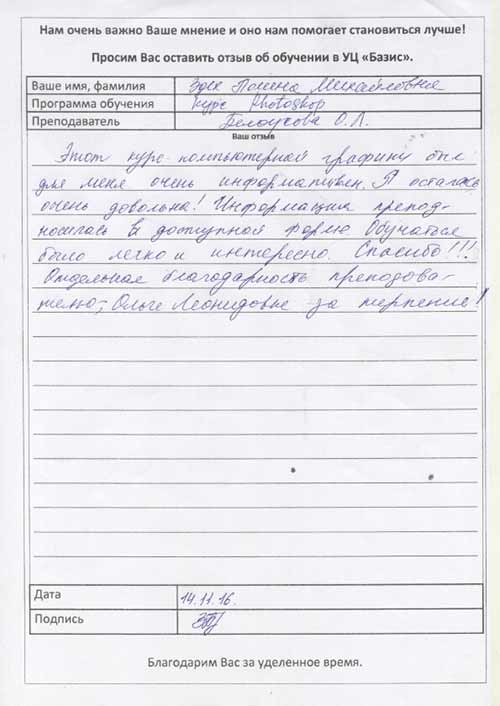 Нам очень важно Ваше мнение и оно нам помогает становиться лучше!
Просим Вас оставить отзыв об обучении в УЦ «Базис».
Ваше имя, фамилия Полина Михайловна
Программа обучения Курс Photoshop
Преподаватель Белоусова О.Л.
Ваш отзыв
Этот курс компьютерной графики был
для меня очень информативен. Я осталась
очень довольна! Информация препод-
носилась в доступной форме Обучаться
было легко и интересно. Спасибо!!!
Отдельная благодарность преподова-
телю, Ольге Леонидовне за терпение!
Дата 14.11.16.
Подпись
Благодарим Вас за уделенное время.